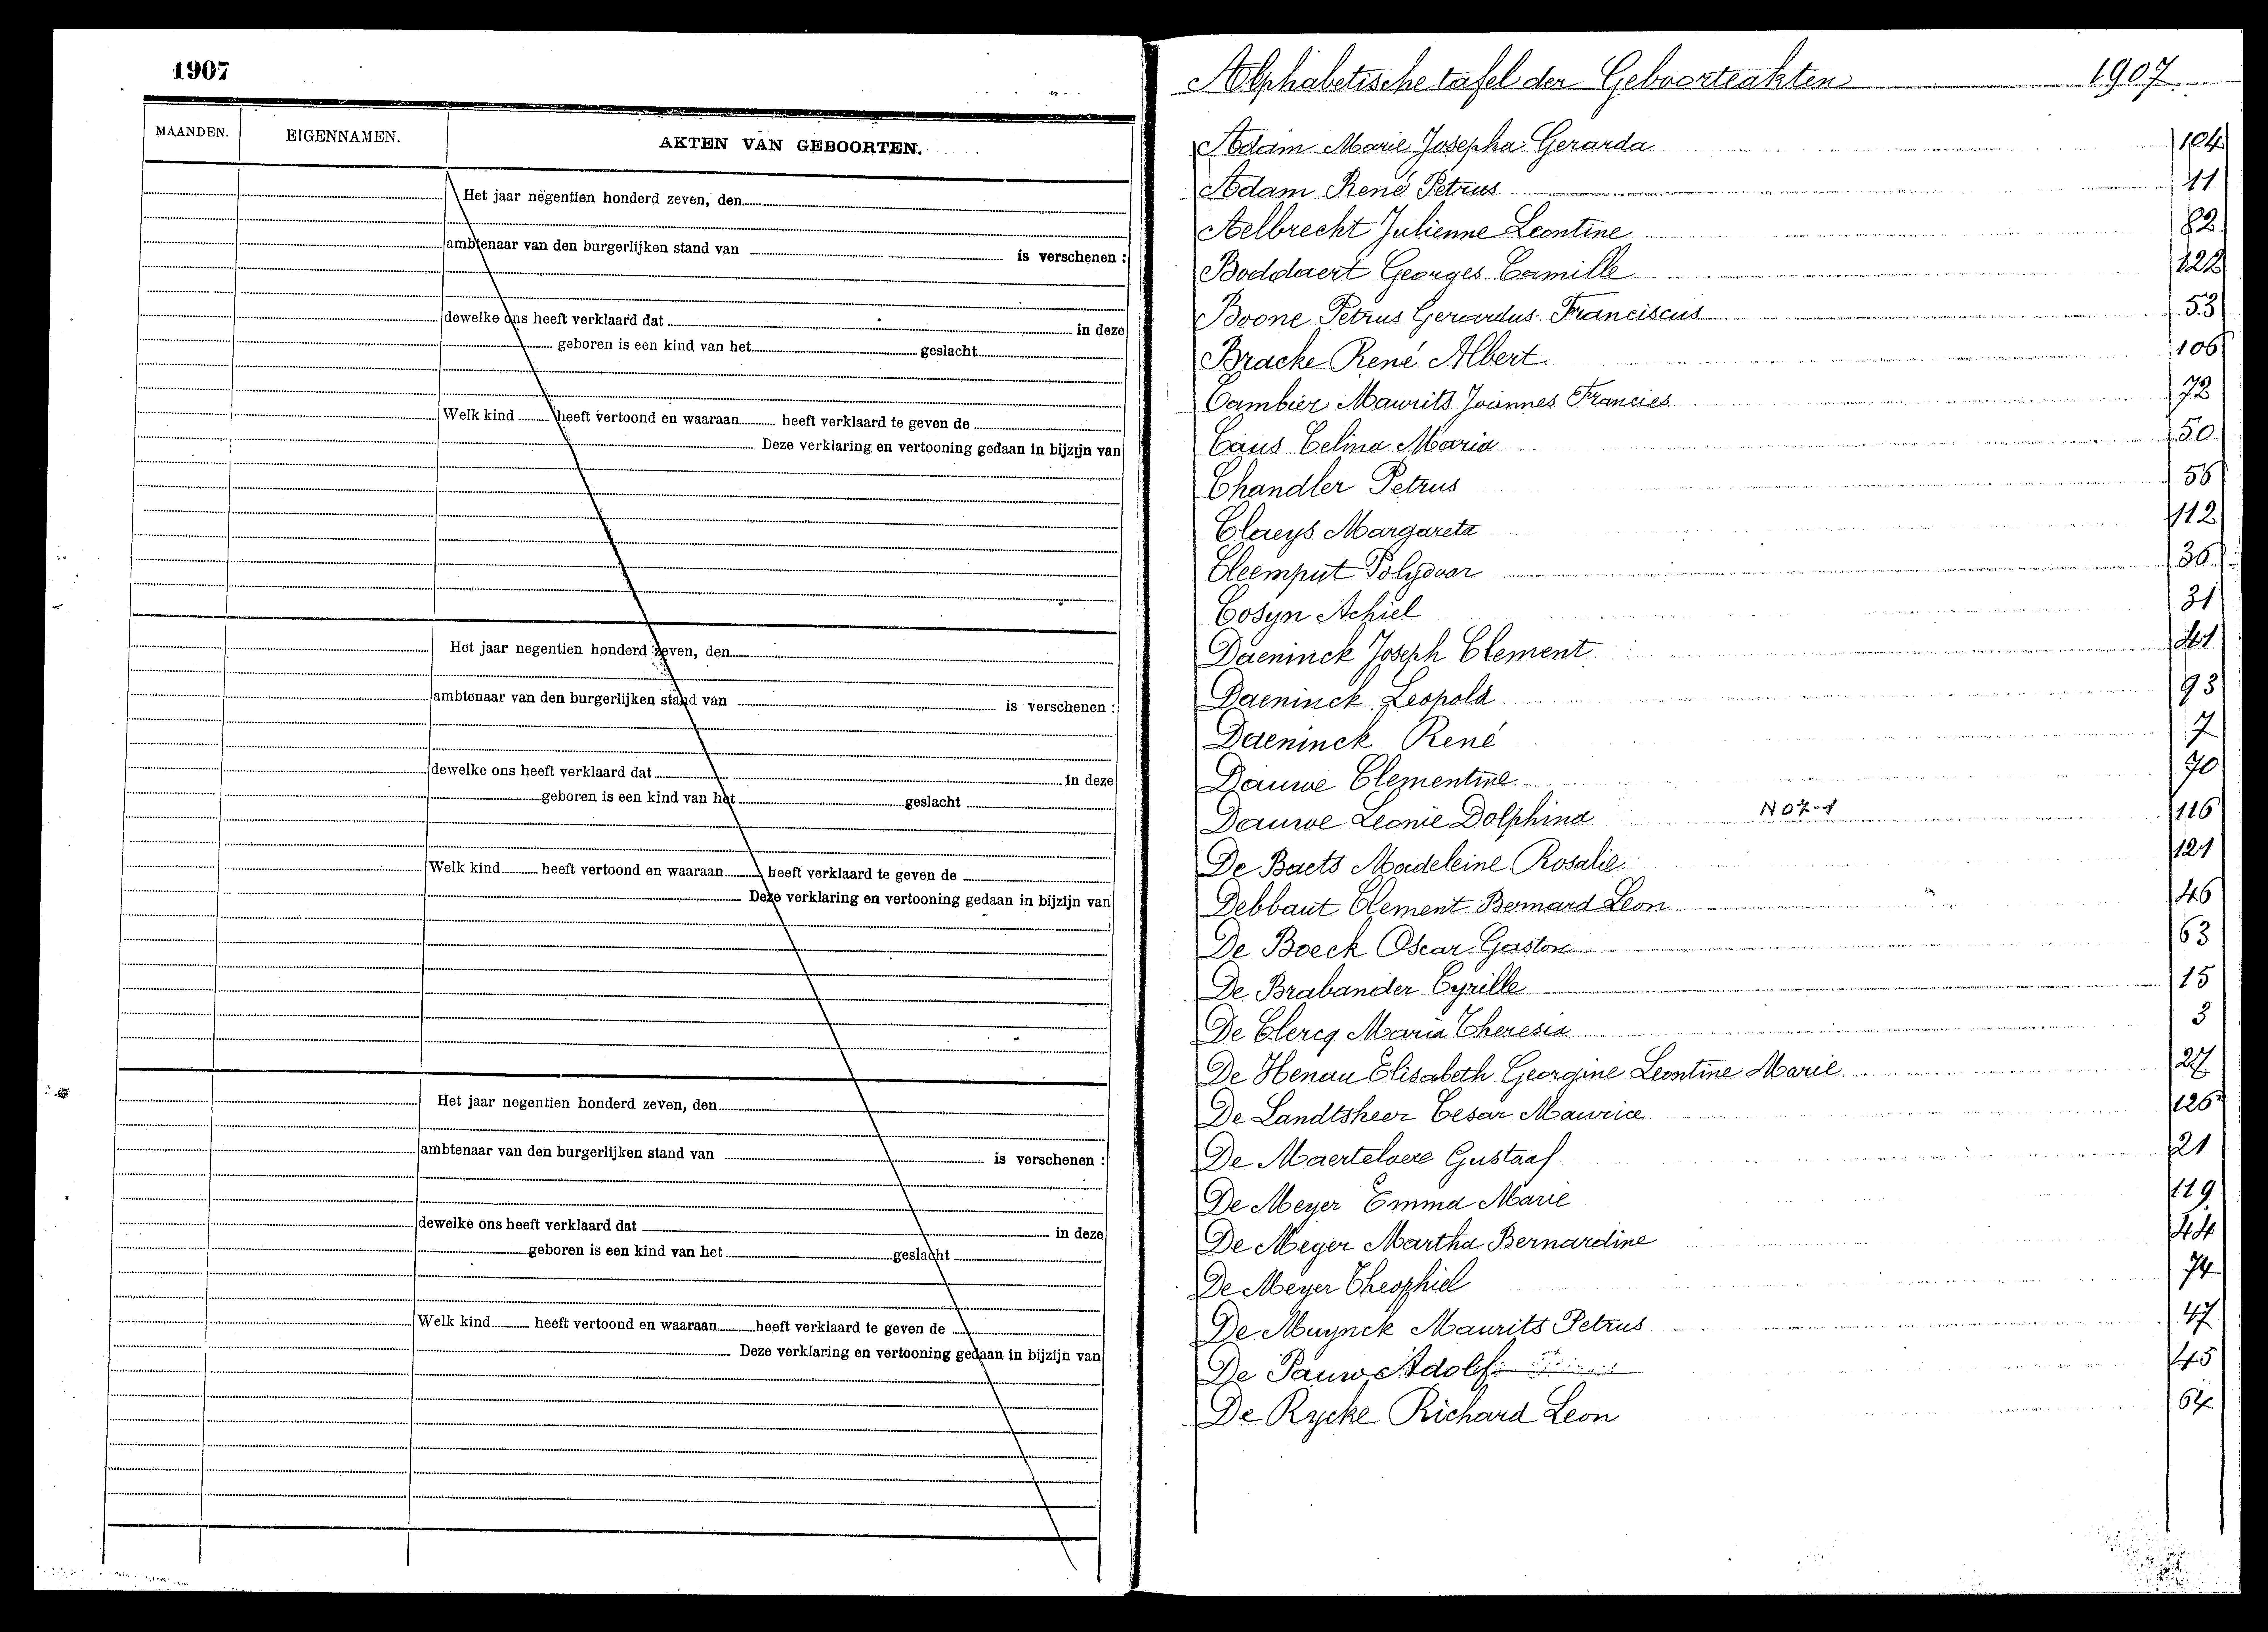 1907
MAANDEN. EIGENNAMEN. AKTEN VAN GEBOORTEN.
Het jaar negentien honderd zeven, den
ambtenaar van den burgerlijken stand van is verschenen :
dewelke ons heeft verklaard dat in deze
geboren is een kind van het geslacht
Welk kind heeft vertoond en waaraan heeft verklaard te geven de
Deze verklaring en vertooning gedaan in bijzijn van
Het jaar negentien honderd zeven, den
ambtenaar van den burgerlijken stand van is verschenen :
dewelke ons heeft verklaard dat in deze
geboren is een kind van het geslacht
Welk kind heeft vertoond en waaraan heeft verklaard te geven de
Deze verklaring en vertooning gedaan in bijzijn van
Het jaar negentien honderd zeven, den
ambtenaar van den burgerlijken stand van is verschenen :
dewelke ons heeft verklaard dat in deze
geboren is een kind van het geslacht
Welk kind heeft vertoond en waaraan heeft verklaard te geven de
Deze verklaring en vertooning gedaan in bijzijn van
Alphabetische tafel der Geboorteakten 1907
Adam Marie Josepha Gerarda 104
Adam René Petrus 11
Aelbrecht Julienne Leontine 82
Boddaert Georges Camille 122
Boone Petrus Gerardus Franciscus 53
Bracke René Albert 106
Cambier Maurits Joannes Francies 72
Caus Celina Maria 50
Chandler Petrus 56
Claeys Margareta 112
Cleemput Polydoor 36
Cosyn Achiel 31
Daeninck Joseph Clement 41
Daeninck Leopold 93
Daeninck René 7
Dauwe Clementine 70
Dauwe Leonie Dolphina No 7-1 116
De Baets Madeleine Rosalie 121
Debbaut Clement Bernard Leon 46
De Boeck Oscar Gaston 63
De Brabander Cyrille 15
De Clercq Maria Theresia 3
De Henau Elisabeth Georgine Leontine Marie 27
De Landtsheer Cesar Maurice 126
De Maertelaere Gustaaf 21
De Meyer Emma Marie 119
De Meyer Martha Bernardine 44
De Meyer Theophiel 74
De Muynck Maurits Petrus 47
De Pauw Adolf 45
De Rycke Richard Leon 64